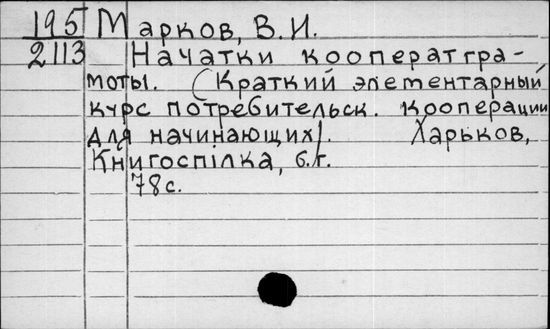 195 Марков, В. И.
2113 Начатки кооператгра-
моты. (Краткий элементарный
курс потребительск. кооперации
для начинающих). Харьков,
Книгоспілка, б.г.
78 с.